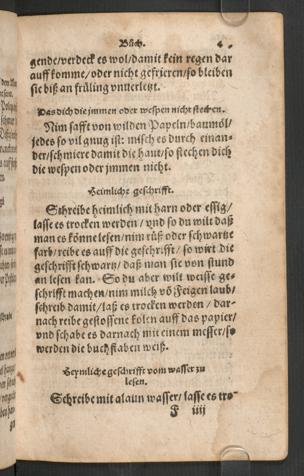 Büch. 4
gende/verdeck es wol/damit kein regen dar
auff komme/oder nicht gefrieren/so bleiben
sie biß an frůling vnuerletzt.
Das dich die jmmen oder wespen nicht stechen.
Nim safft von wilden Papeln/baumöl/
jedes so vil gnug ist: misch es durch einan-
der/schmiere damit die haut/so stechen dich
die wespen oder jmmen nicht.
Heimliche geschrifft.
Schreibe heimlich mit harn oder essig/
lasse es trocken werden/vnd so du wilt daß
man es könne lesen/nim růß oder schwartze
farb/reibe es auff die geschrifft/so wirt die
geschrifft schwartz/daß man sie von stund
an lesen kan. So du aber wilt weisse ge-
schrifft machen/nim milch võ Feigen laub/
schreib damit/laß es trocken werden/dar-
nach reibe gestossene kolen auff das papier/
vnd schabe es darnach mit einem messer/so
werden die buchstaben weiß.
Heymliche geschrifft vom wasser zu
lesen.
Schreibe mit alaun wasser/lasse es tro-
F iiij